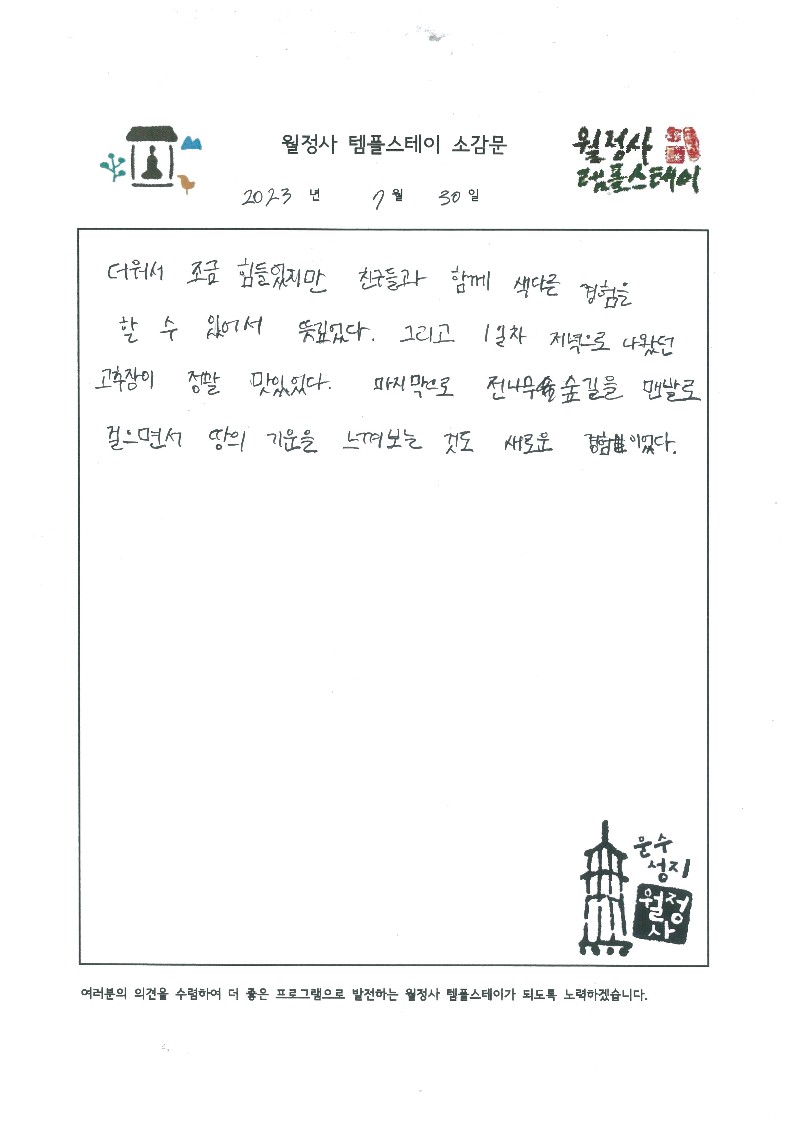 월정사 템플스테이 소감문
월정사
템플스테이
2023 년 7 월 30 일
더워서 조금 힘들었지만 친구들과 함께 색다른 경험을
할 수 있어서 뜻깊었다. 그리고 1일차 저녁으로 나왔던
고추장이 정말 맛있었다. 마지막으로 전나무 숲길을 맨발로
걸으면서 땅의 기운을 느껴보는 것도 새로운 경험이었다.
문수
성지
월정
사
여러분의 의견을 수렴하여 더 좋은 프로그램으로 발전하는 월정사 템플스테이가 되도록 노력하겠습니다.